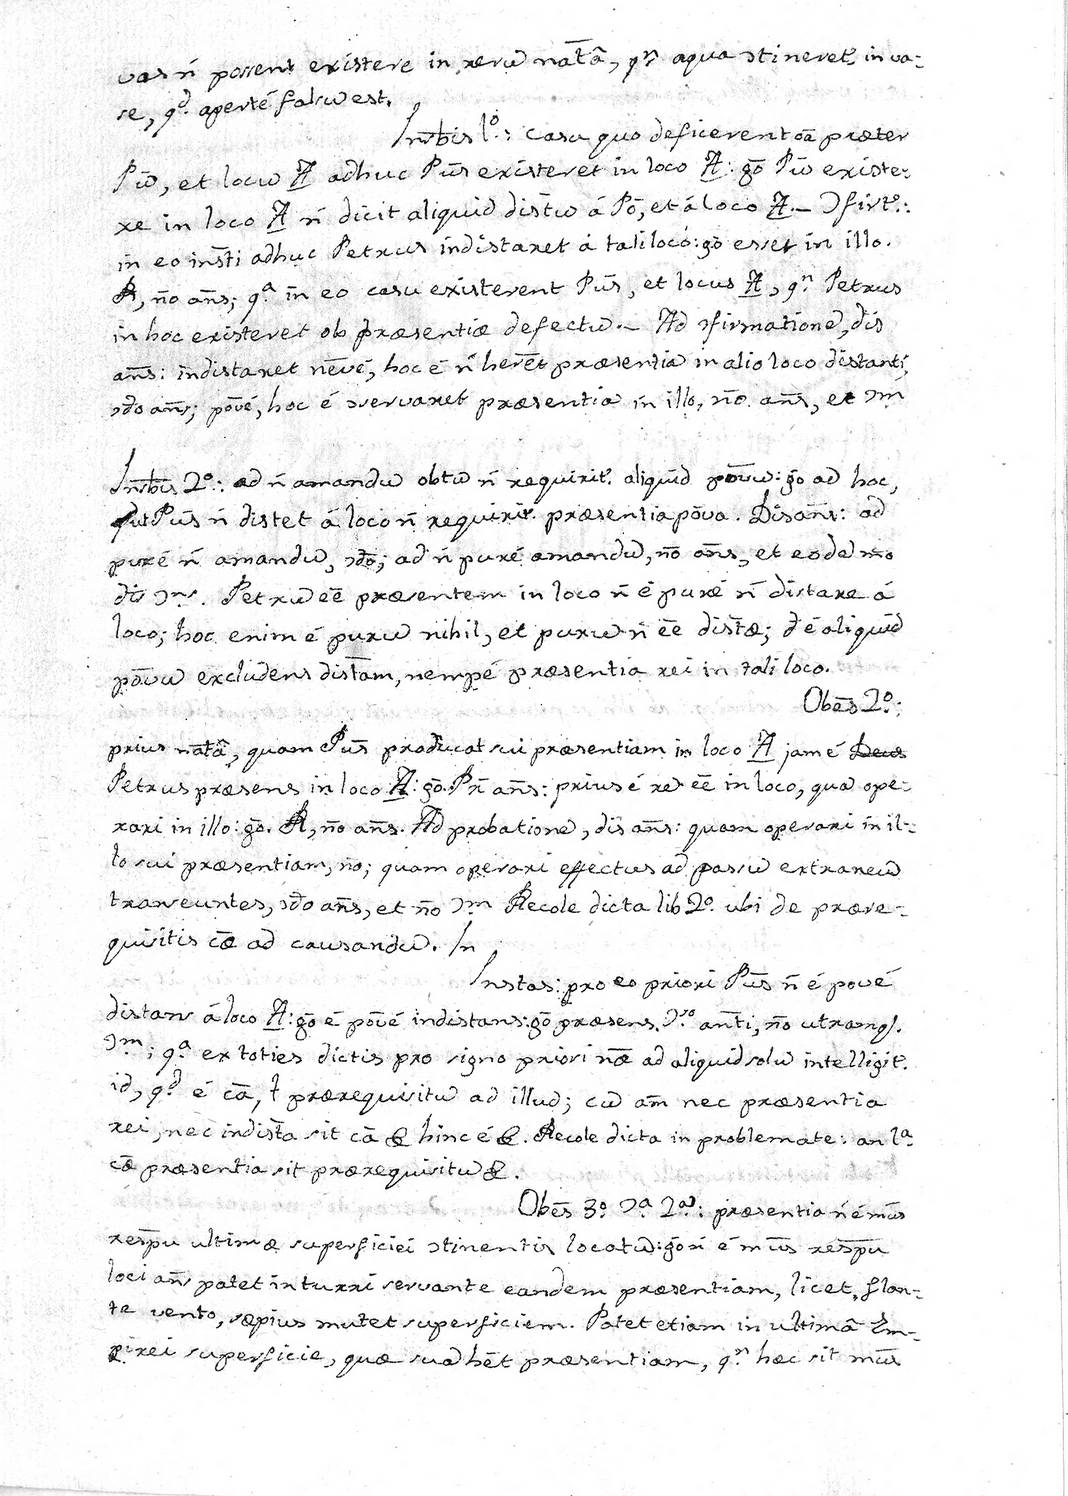 vas ñ possent existere in rerũ nat̃â, qⁿ aqua ɔtineret.̃ in va-
se, q.ᵈ aperté falsũ est.
Insbis 1º: Casu quo deficerent oã præter
Pũ, et locũ A adhuc Pũs existeret in loco A: gõ Pũ existe-
re in loco A ñ dicit aliquid distũ á Põ, et á loco A.— Ɔfirt.º:
in eo insti adhuc Petrus indistaret á tali loco: gõ esset in illo.
R, ño añs; qᵃ in eo casu existerent Pũs, et locus A, qⁿ Petrus
in hoc existeret ob præsentiæ defectũ.— Ad ɔfirmationẽ, dis
añs: indistaret nẽvé, hoc é ñ herẽt præsentiã in alio loco distanti,
ɔdo añs; põvé, hoc é ɔservaret præsentiã in illo, ño añs, et ɔᵐ
Insbis 2º: ad ñ amandũ obtũ ñ requirit.̃ aliquid põvũ: gõ ad hoc,
ut Pũs ñ distet á loco ñ requirit.̃ præsentia põva. Dis añs: ad
puré ñ amandũ, ɔdo; ad ñ puré amandũ, ño añs, et eodẽ mo
dis ɔⁿˢ. Petrũ eẽ præsentem in loco ñ é puré ñ distare á
loco; hoc enim é purũ nihil, et purũ ñ eẽ distæ; d é aliquid
põvũ excludens distam, nempé præsentia rei in tali loco.
Obẽs 2º:
prius natâ, quam Pũs producat sui præsentiam in loco A jam é Deus
Petrus præsens in loco A: gõ. Pr̃ añs: prius é rẽ eẽ in loco, quã ope-
rari in illo: gõ. R, ño añs. Ad probationẽ, dis añs: quam operari in il-
lo sui præsentiam, ño; quam operari effectus ad passũ extraneũ
transeuntes, ɔdo añs, et ño ɔᵐ Recole dicta lib 2º ubi de prære-
quisitis cæ̃ ad causandũ. In
Instas: pro eo priori Pũs ñ é povẽ
distans á loco A: gõ é põvé indistans: gõ præsens. Ɔˢᵒ anti, ño utramq.
ɔᵐ; qᵃ ex toties dictis pro signo priori næ̃ ad aliquid solũ intelligit.̃
id, q.ᵈ é cã, l prærequisitũ ad illud; cũ am̃ nec præsentia
rei, nec indista sit cã & hinc é &. Recole dicta in problemate: an 1ᵃ
cæ̃ præsentia sit prærequisitũ &.
Obẽs 3º ɔᵃ 2ᵃᵐ: præsentia ñ é mũs
respũ ultimæ superficiei ɔtinentis locatũ: gõ ñ é mũs respũ
loci añs patet in turri servante eandem præsentiam, licet, flan-
te vento, sæpius mutet superficiem. Patet etiam in ultimâ Em-
pirei superficie, quæ suã hẽt præsentiam, qⁿ hæc sit mũs